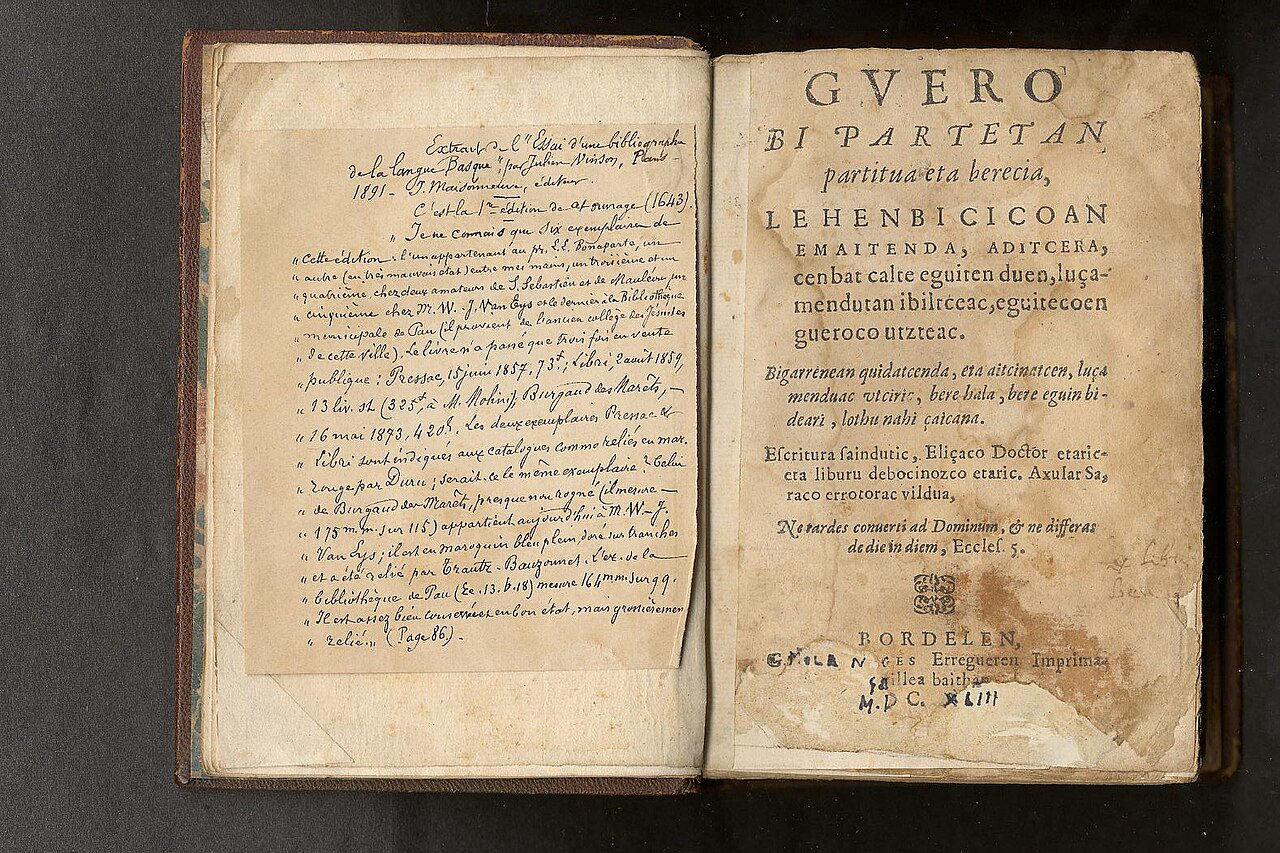 Extrait de l'"Essai d'une bibliographie
de la langue Basque", par Julien Vinson, Paris -
1891 - J. Maisonneuve, éditeur.
C'est la 1re édition de cet ouvrage (1643).
„ Je ne connais que six exemplaires de
„ cette édition: l'un appartenant au pr. L.L. Bonaparte, un
„ autre (en très mauvais état) entre mes mains, un troisième et un
„ quatrième, chez deux amateurs de S. Sébastien et de Mauléon, un
„ cinquième chez M. W. J. Van Eys et le dernier à la Bibliothèque
„ municipale de Pau (il provient de l'ancien collège des Jésuites
„ de cette ville). Le livre n'a passé que trois fois en vente
„ publique: Pressac, 15 juin 1857, 73f; Libri, 2 août 1859,
„ 13 liv. st (325f à M. Molini), Burgaud des Marets, -
„ 16 mai 1873, 420f. Les deux exemplaires Pressac &
„ Libri sont indiqués aux catalogues comme reliés en mar.
„ rouge par Duru; serait-ce le même exemplaire? Celui
„ de Burgaud des Marets, presque non rogné (il mesure -
„ 175 m.m. sur 115) appartient aujourd'hui à M. W- J.
„ Van Eys; il est en maroquin bleu plein, doré sur tranches
„ et a été relié par Trautz-Bauzonnet. L'ex. de la
„ bibliothèque de Pau (Ee. 13. b. 18) mesure 164 mm. sur 99.
„ Il est assez bien conservé et en bon état, mais grossièremen
„ relié.„ (Page 86.) -
GVERO
BI PARTETAN
partitua eta berecia,
LEHENBICICOAN
EMAITENDA, ADITCERA,
cenbat calte eguiten duen, luça-
mendutan ibiltceac, eguitecoen
gueroco utzteac.
Bigarrenean quidatcenda, eta aitcinatcen, luça
menduac vtciric, bere hala, bere eguin bi-
deari, lothu nahi çaicana.
Eſcritura ſaindutic, Eliçaco Doctor etaric-
eta liburu debocinozco etaric. Axular Sa,
raco errotorac vildua,
Ne tardes conuerti ad Dominum, & ne differas
de die in diem, Eccleſ. 5.
BORDELEN,
G. MILANGES Erregueren Imprima-
çaillea baithan
M.DC. XLIII